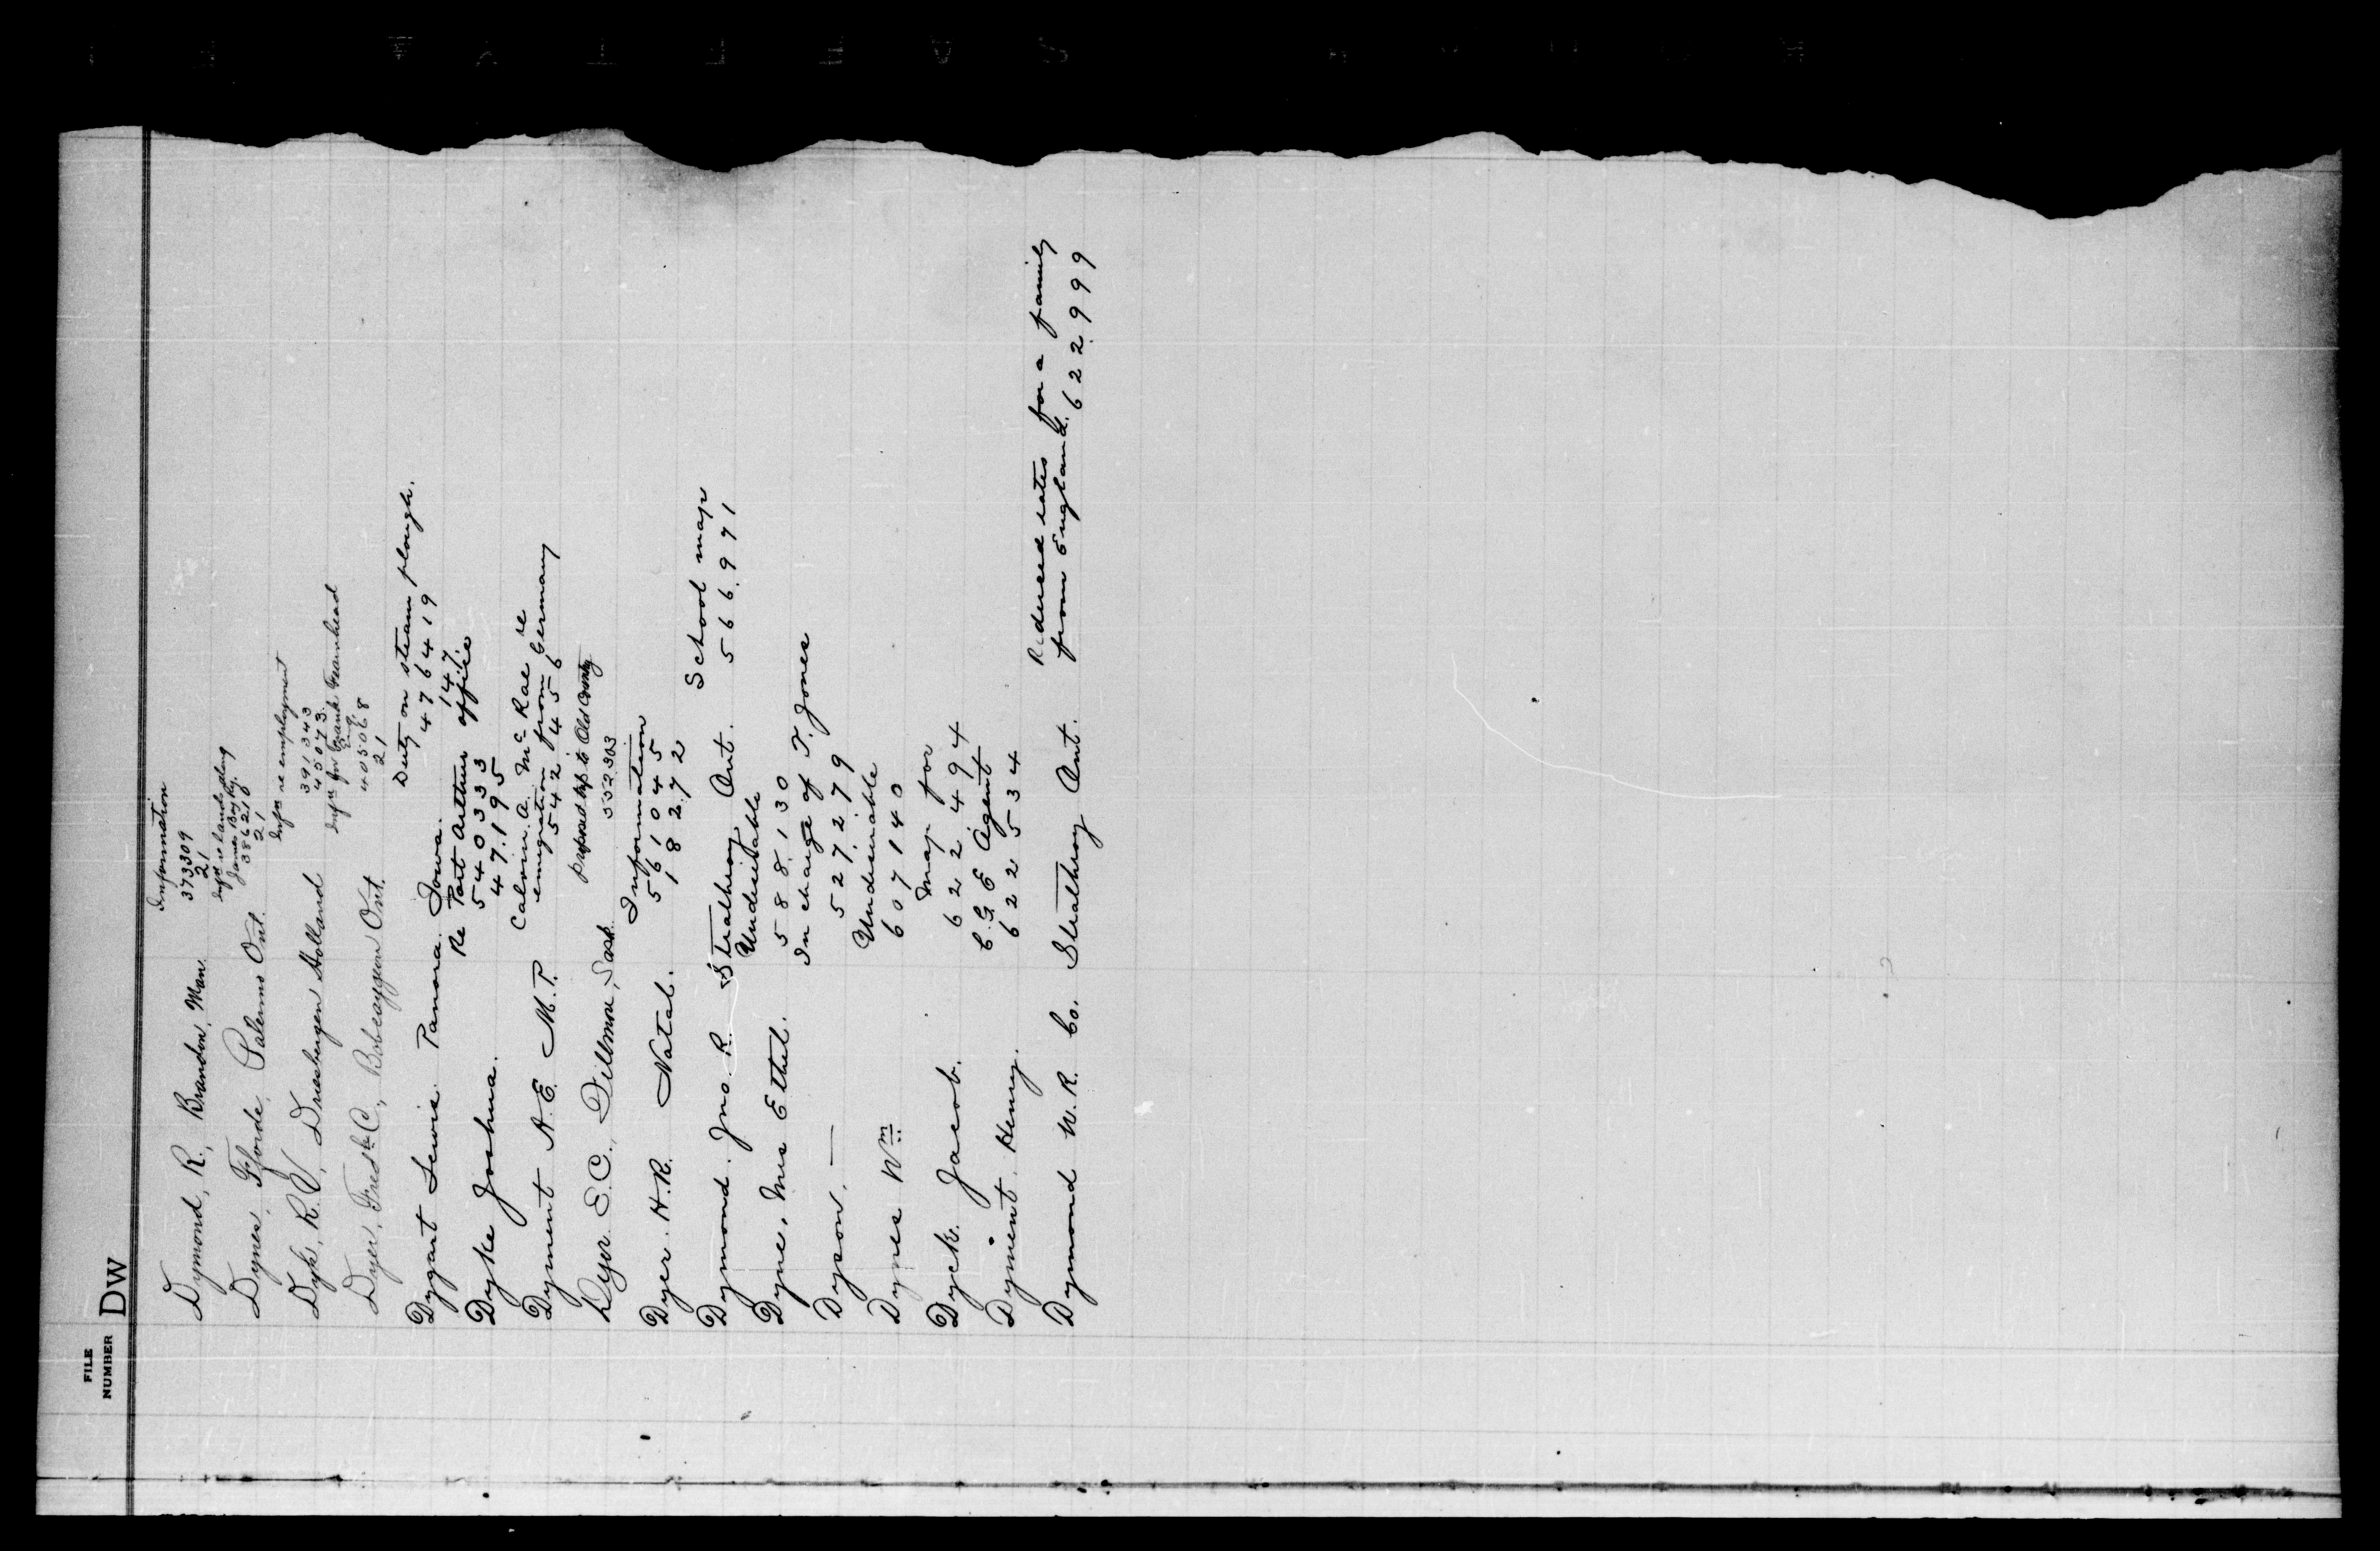 FILE
NUMBER
DW
Dymond, R., Brandon, Man. Information
373309
21
Dynes, Fforde, Palermo Ont. Infn re lands along
James Bay Ry.
386210
21
Dyk, R. V, Driesbergen Holland Infn re employment
391343
45073
Dyer, Fredk C., Bobcaygeon Ont. Infn for Frank Fearnhead
Eng.
405068
21
Dygart Lewis Panora Iowa. Duty on steam plough.
4764 19
147
Dyke Joshua. Re Port Arthur office
540333
47.195
Dyment A.E. M.P. Calvin. A. McRae re
emigration from Germany
542456
Dyer E.C., Dillmore, Sask. Proposed trip to Old Country
552303
Dyer. H.R. Natal. Information
561045
18272
Dymond. Jno. R. Strathroy Ont. School map
566.971
Dyne, Mrs Ethel. Undesirable
588.130
Dyson. — In charge of T. Jones
527.279
Dynes Wm Undesirable
607140
Dyck Jacob. Map for
622494
Dyment Henry. C.G.E Agent
622534
Dymond W.R. Co. Strathroy Ont. Reduced rates for a family
from England. 622999